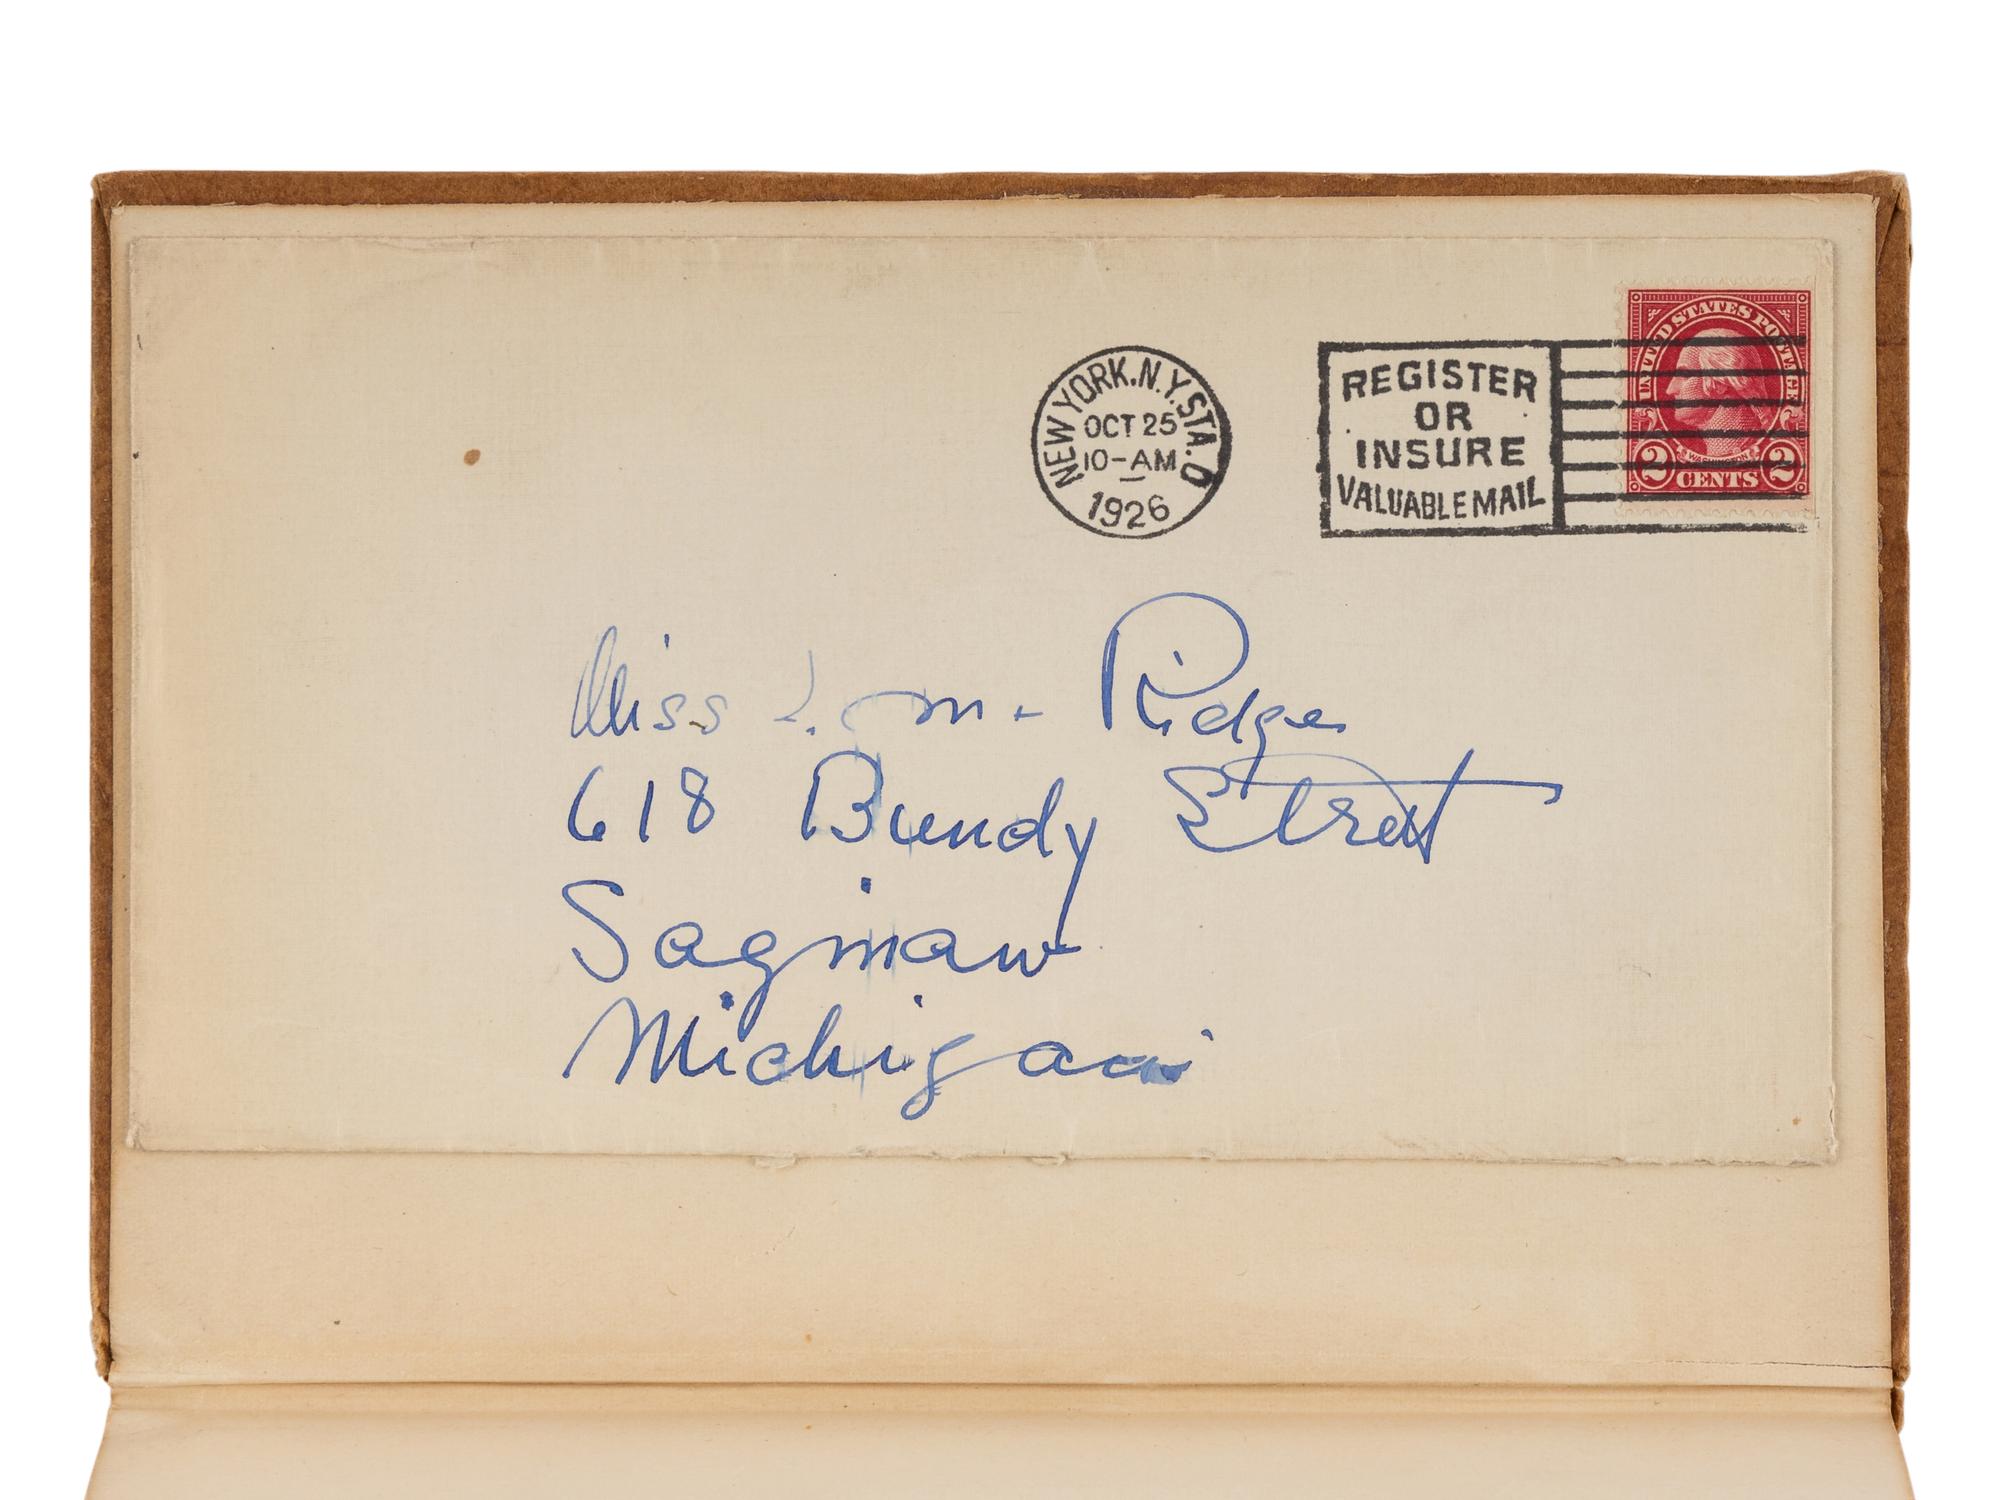 NEW YORK, N.Y. STA. O
OCT 25
10-AM
1926
REGISTER
OR
INSURE
VALUABLE MAIL
UNITED STATES POSTAGE
WASHINGTON
2 CENTS 2
Miss M. Ridge
618 Bundy Street
Saginaw
Michigan